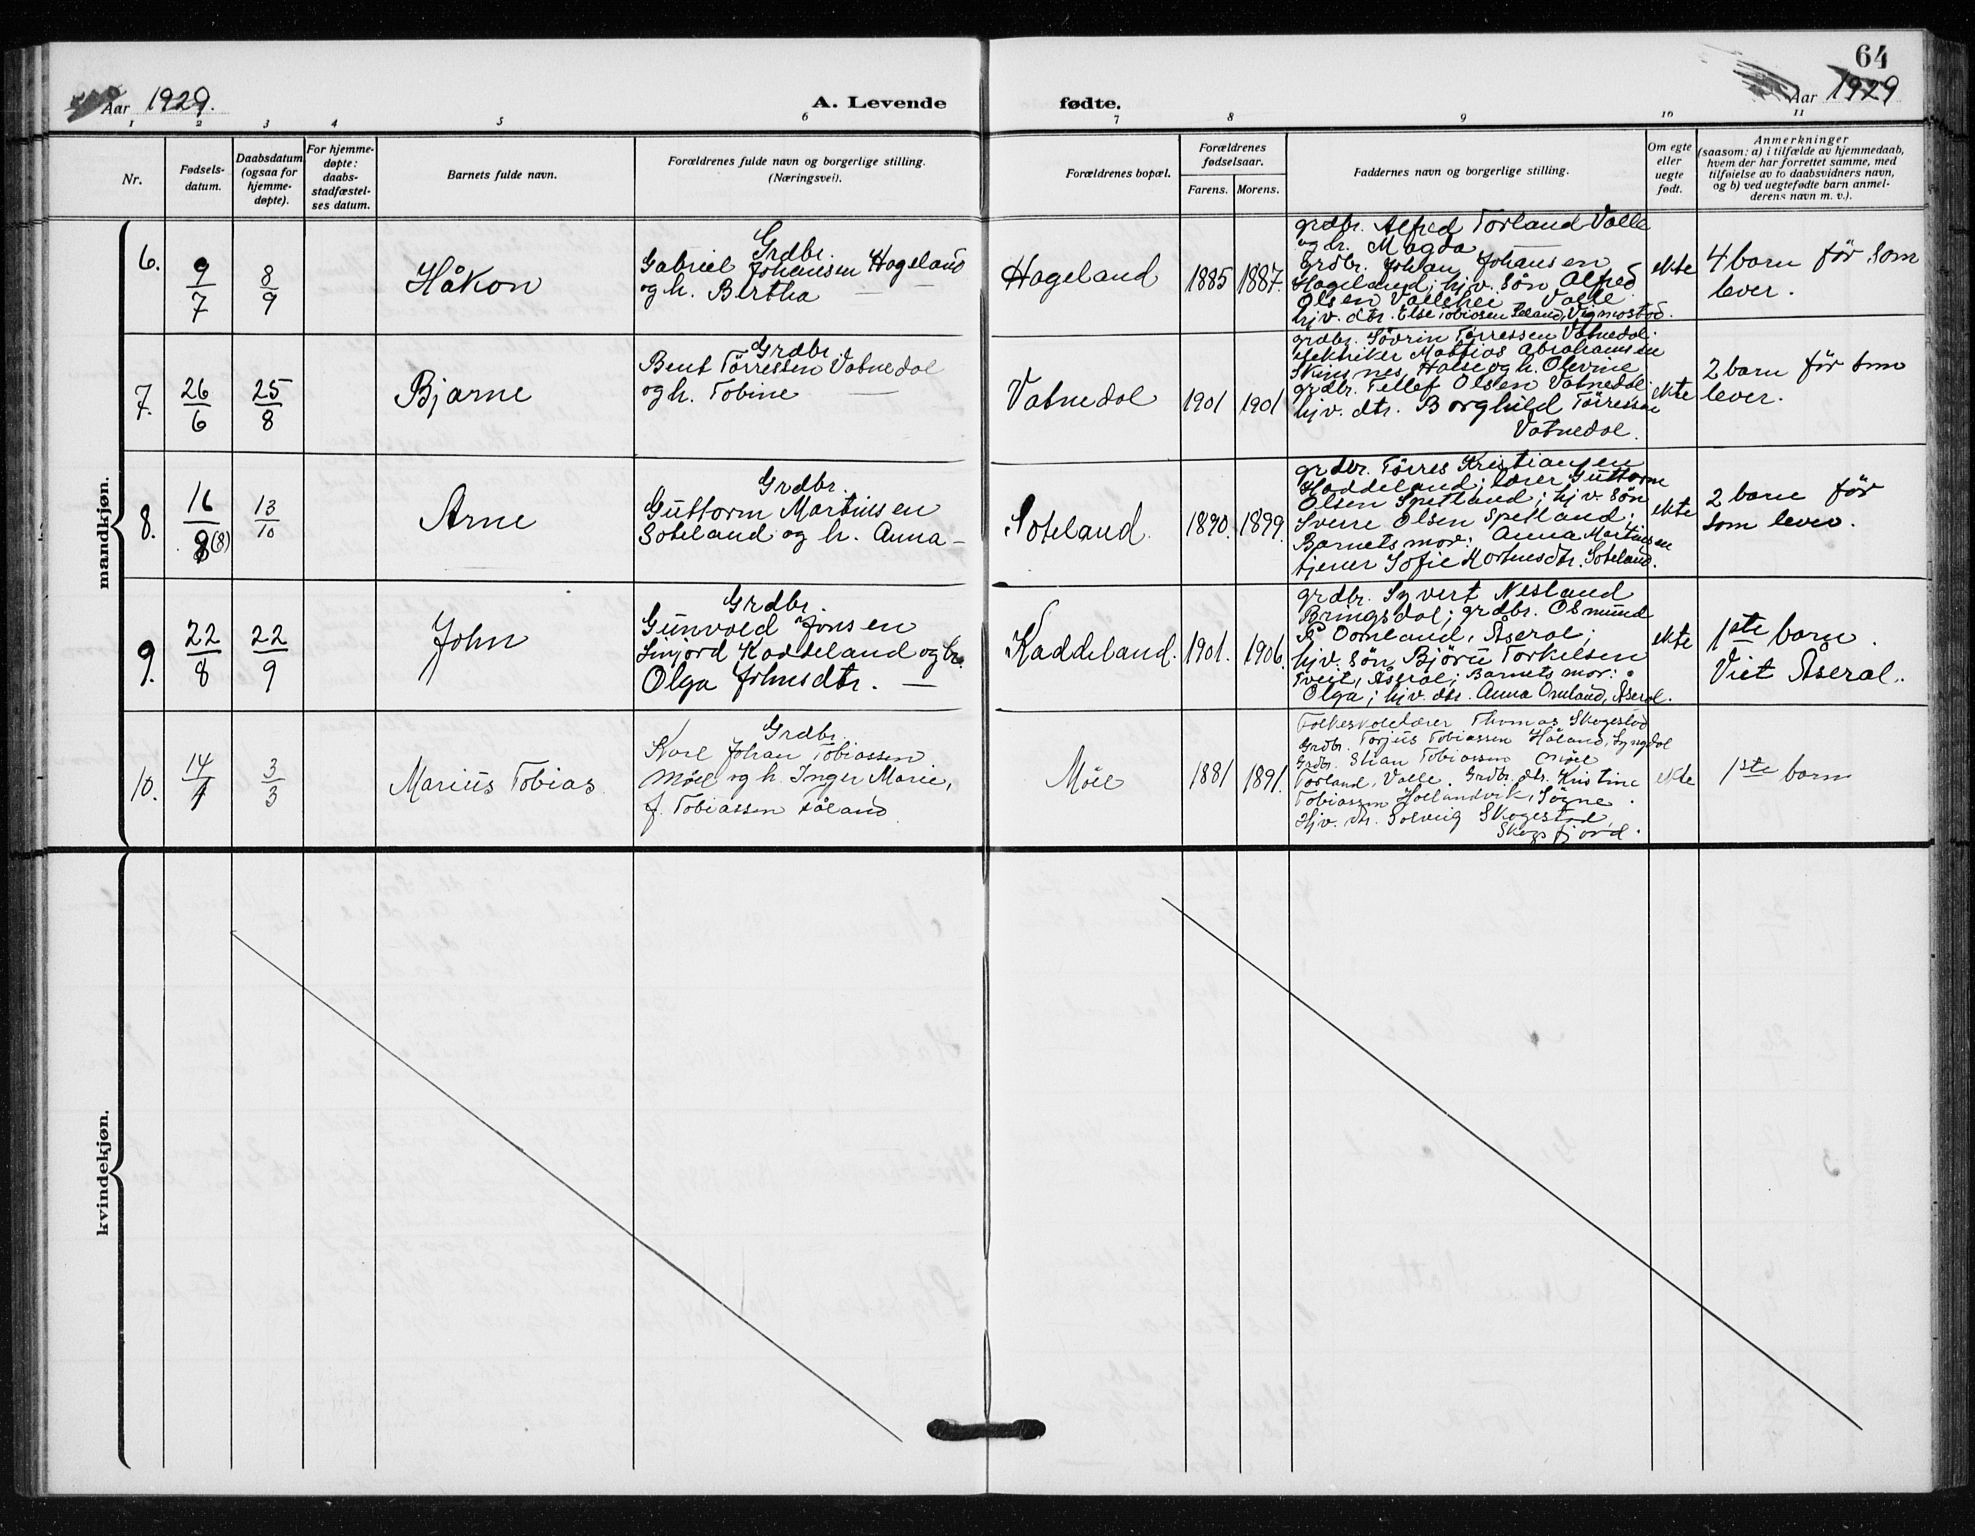 64
Aar 1929.
A. Levende
fødte.
Aar 1929
1 2 3 4 5 6 7 8 9 10 11
Nr.
Fødsels-
datum.
Daabsdatum
(ogsaa for
hjemme-
døpte).
For hjemme-
døpte:
daabs-
stadfæstel-
ses datum.
Barnets fulde navn.
Forældrenes fulde navn og borgerlige stilling.
(Næringsvei).
Forældrenes bopæl.
Forældrenes
fødselsaar.
Farens. Morens.
Faddernes navn og borgerlige stilling.
Om egte
eller
uegte
født.
Anmerkninger
(saasom: a) i tilfælde av hjemmedaab,
hvem der har forrettet samme, med
tilføielse av to daabsvidners navn,
og b) ved uegtefødte barn anmel-
derens navn m. v.).
mandkjøn.
6.
9/7
8/9
Håkon
Grdbr.
Gabriel Johansen Hageland
og h. Bertha —
Hageland
1885
1887.
grdbr. Alfred Torland Valle
og h. Magda —
Grdbr. Johan Johansen
Hageland; hjv. søn Alfred
Olsen Vallehei Valle.
hjv. dtr. Else Tobiasen Leland, Vigmostad.
ekte
4 barn før som
lever.
7.
26/6
25/8
Bjarne
Grdbr.
Bent Törressen Vatnedal
og h. Tobine —
Vatnedal
1901
1901
grdbr. Sövrin Törressen Vatnedal.
elektriker Mathias Abrahamsen
Skinsnes, Halse og h. Olevine
grdbr. Tellef Olsen Vatnedal.
hjv. dtr. Borghild Törressen
Vatnedal.
ekte
2 barn før som
lever.
8.
16/8 (8)
13/10
Arne
Grdbr.
Guttorm Martinsen
Soteland og h. Anna —
Soteland.
1890.
1899.
grdbr. Törres Kristiansen
Haddeland; lærer Guttorm
Olsen Spetland; hjv. søn
Sverre Olsen Spetland;
Barnets mor: Anna Martinsen
tjener Sofie Martinsdtr. Soteland.
ekte
2 barn før
som lever.
9.
22/8
22/9
John
Grdbr.
Gunvald Jonsen
Linjord Kaddeland og h.
Olga Johnsdtr. —
Kaddeland.
1901.
1906.
grdbr. Syvert Nesland
Bringsdal; grdbr. Osmund
P. Omland, Åseral;
hjv. søn Björu Torkelsen
Tveit, Åseral; Barnets mor:
Olga; hjv. dtr. Anna Omland, Åseral.
ekte
1ste barn.
Viet Åseral.
10.
14/1
3/3
Marius Tobias.
Grdbr.
Karl Johan Tobiassen
Möie og h. Inger Marie,
f. Tobiassen Håland.
Möie
1881
1891.
Folkeskolelærer Thomas Skogestad
Grdbr. Torjus Tobiassen Håland, Lyngdal
Grdbr. Stian Tobiassen Möie
Torland, Valle. Grdbr. dtr. Kristine
Tobiassen Höllandvik, Søgne.
Hjv. dtr. Solveig Skogestad,
Skogsfjord.
ekte
1ste barn
kvindekjøn.